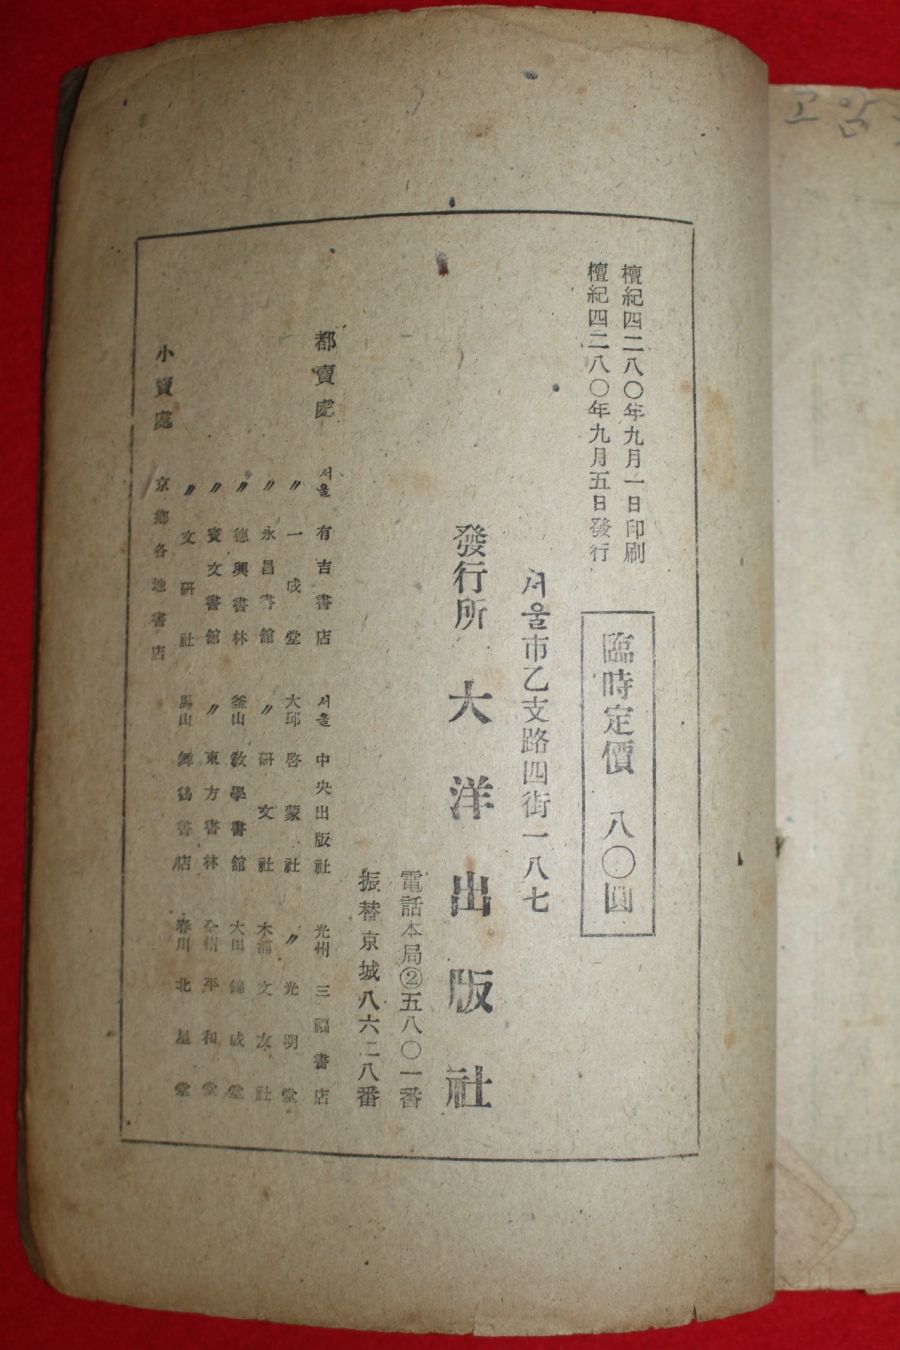 檀紀四二八〇年九月一日印刷
檀紀四二八〇年九月五日發行
臨時定價 八〇圓
서울市乙支路四街一八七
發行所 大洋出版社
電話本局②五八〇一番
振替京城八六二八番
都賣處 서울 有吉書店 서울 中央出版社 光州 三福書店
〃 一成堂 大邱 啓蒙社 〃 光明堂
〃 永昌書館 〃 研文社 木浦 文友社
〃 德興書林 釜山 敎學書館 大田 錦成堂
〃 寶文書館 〃 東方書林 全州 平和堂
〃 文研社 馬山 舞鶴書店 春川 北星堂
小賣處 京鄕各地書店
고암